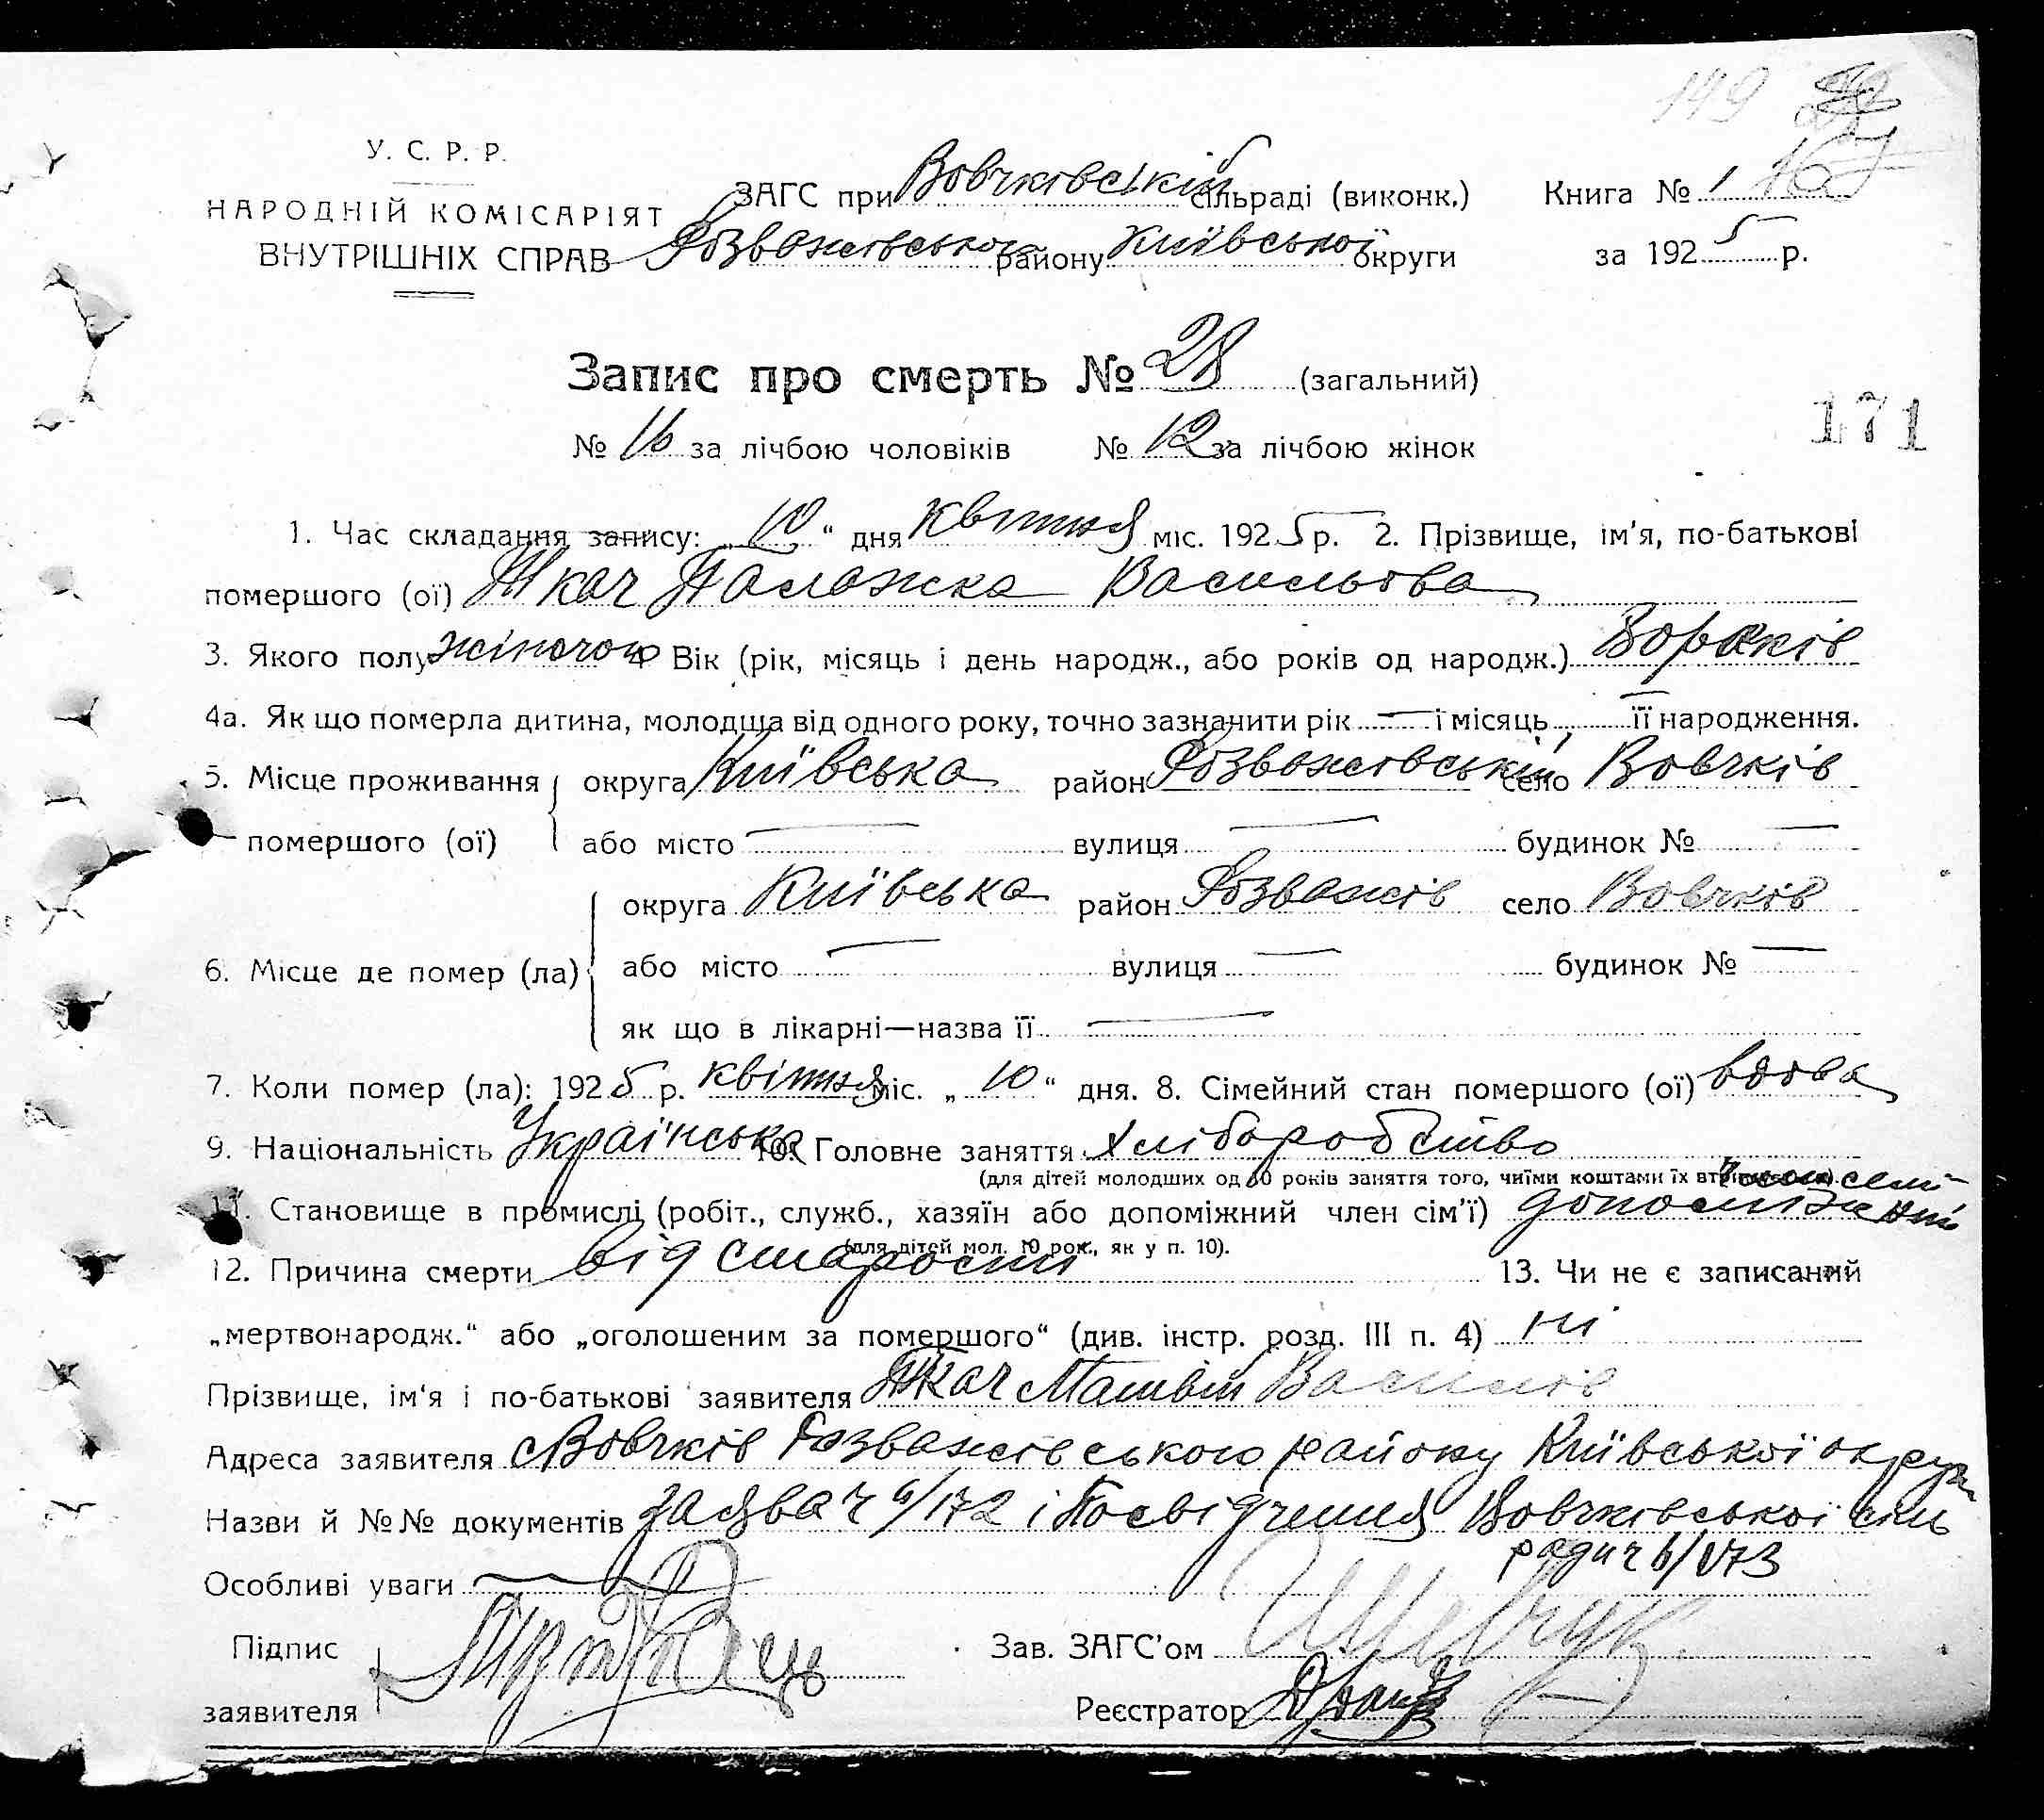 149
У. С. Р. Р.
НАРОДНІЙ КОМІСАРІЯТ
ВНУТРІШНІХ СПРАВ
ЗАГС при Вовчківській сільраді (виконк.) Книга № 1
Розважівського району Київської округи за 1925 р.
Запис про смерть № 28 (загальний)
№ 16 за лічбою чоловіків № 12 за лічбою жінок
171
1. Час складання запису: „10“ дня квітня міс. 1925 р. 2. Прізвище, ім'я, по-батькові
помершого (ої) Ткач Палажка Васильова
3. Якого полу жіночого 4. Вік (рік, місяць і день народж., або років од народж.)
4а. Як що померла дитина, молодща від одного року, точно зазначити рік — і місяць — її народження.
5. Місце проживання округа Київська район Розважівський село Вовчків
помершого (ої) або місто — вулиця — будинок № —
округа Київська район Розважів село Вовчків
6. Місце де помер (ла) або місто — вулиця — будинок № —
як що в лікарні—назва її —
7. Коли помер (ла): 1925 р. квітня міс. „10“ дня. 8. Сімейний стан помершого (ої) вдова
9. Національність Українська 10. Головне заняття хліборобство
(для дітей молодших од 10 років заняття того, чиїми коштами їх втримується).
11. Становище в промислі (робіт., служб., хазяїн або допоміжний член сім'ї) допоміжний член семї
(для дітей мол. 10 рок., як у п. 10).
12. Причина смерти від старости 13. Чи не є записаний
„мертвонародж.“ або „оголошеним за помершого“ (див. інстр. розд. III п. 4) ні
Прізвище, ім'я і по-батькові заявителя Ткач Матвій Василів
Адреса заявителя с Вовчків Розважівського району Київської округи
Назви й №№ документів заява ч 6/172 і Посвідчення Вовчківської сіль
ради ч 6/173
Особливі уваги
Підпис
заявителя
Зав. ЗАГС'ом Шевчук
Реєстратор